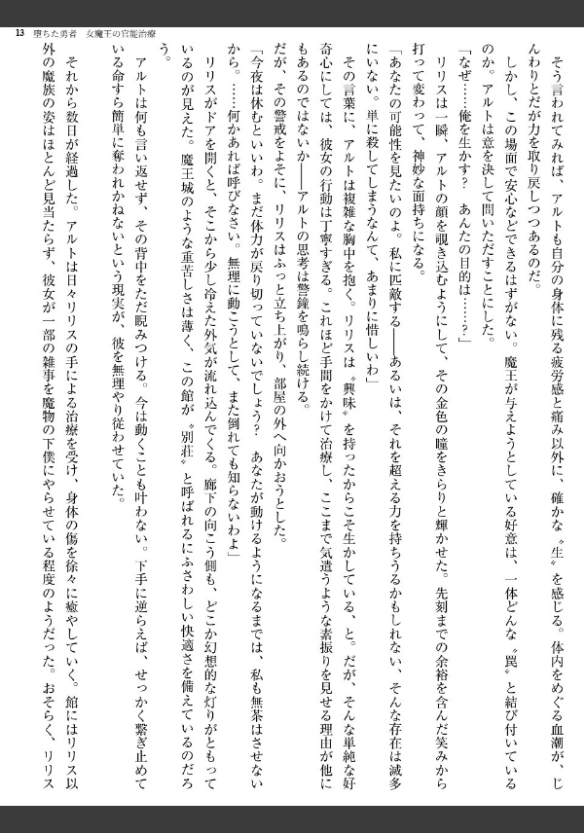 13 堕ちた勇者　女魔王の官能治療
そう言われてみれば、アルトも自分の身体に残る疲労感と痛み以外に、確かな〝生〟を感じる。体内をめぐる血潮が、じ
んわりとだが力を取り戻しつつあるのだ。
しかし、この場面で安心などできるはずがない。魔王が与えようとしている好意は、一体どんな〝罠〟と結び付いている
のか。アルトは意を決して問いただすことにした。
「なぜ……俺を生かす？　あんたの目的は……？」
リリスは一瞬、アルトの顔を覗き込むようにして、その金色の瞳をきらりと輝かせた。先刻までの余裕を含んだ笑みから
打って変わって、神妙な面持ちになる。
「あなたの可能性を見たいのよ。私に匹敵する――あるいは、それを超える力を持ちうるかもしれない、そんな存在は滅多
にいない。単に殺してしまうなんて、あまりに惜しいわ」
その言葉に、アルトは複雑な胸中を抱く。リリスは〝興味〟を持ったからこそ生かしている、と。だが、そんな単純な好
奇心にしては、彼女の行動は丁寧すぎる。これほど手間をかけて治療し、ここまで気遣うような素振りを見せる理由が他に
もあるのではないか――アルトの思考は警鐘を鳴らし続ける。
だが、その警戒をよそに、リリスはふっと立ち上がり、部屋の外へ向かおうとした。
「今夜は休むといいわ。まだ体力が戻り切っていないでしょう？　あなたが動けるようになるまでは、私も無茶はさせない
から。……何かあれば呼びなさい。無理に動こうとして、また倒れても知らないわよ」
リリスがドアを開くと、そこから少し冷えた外気が流れ込んでくる。廊下の向こう側も、どこか幻想的な灯りがともって
いるのが見えた。魔王城のような重苦しさは薄く、この館が〝別荘〟と呼ばれるにふさわしい快適さを備えているのだろ
う。
アルトは何も言い返せず、その背中をただ睨みつける。今は動くことも叶わない。下手に逆らえば、せっかく繋ぎ止めて
いる命すら簡単に奪われかねないという現実が、彼を無理やり従わせていた。
それから数日が経過した。アルトは日々リリスの手による治療を受け、身体の傷を徐々に癒やしていく。館にはリリス以
外の魔族の姿はほとんど見当たらず、彼女が一部の雑事を魔物の下僕にやらせている程度のようだった。おそらく、リリス